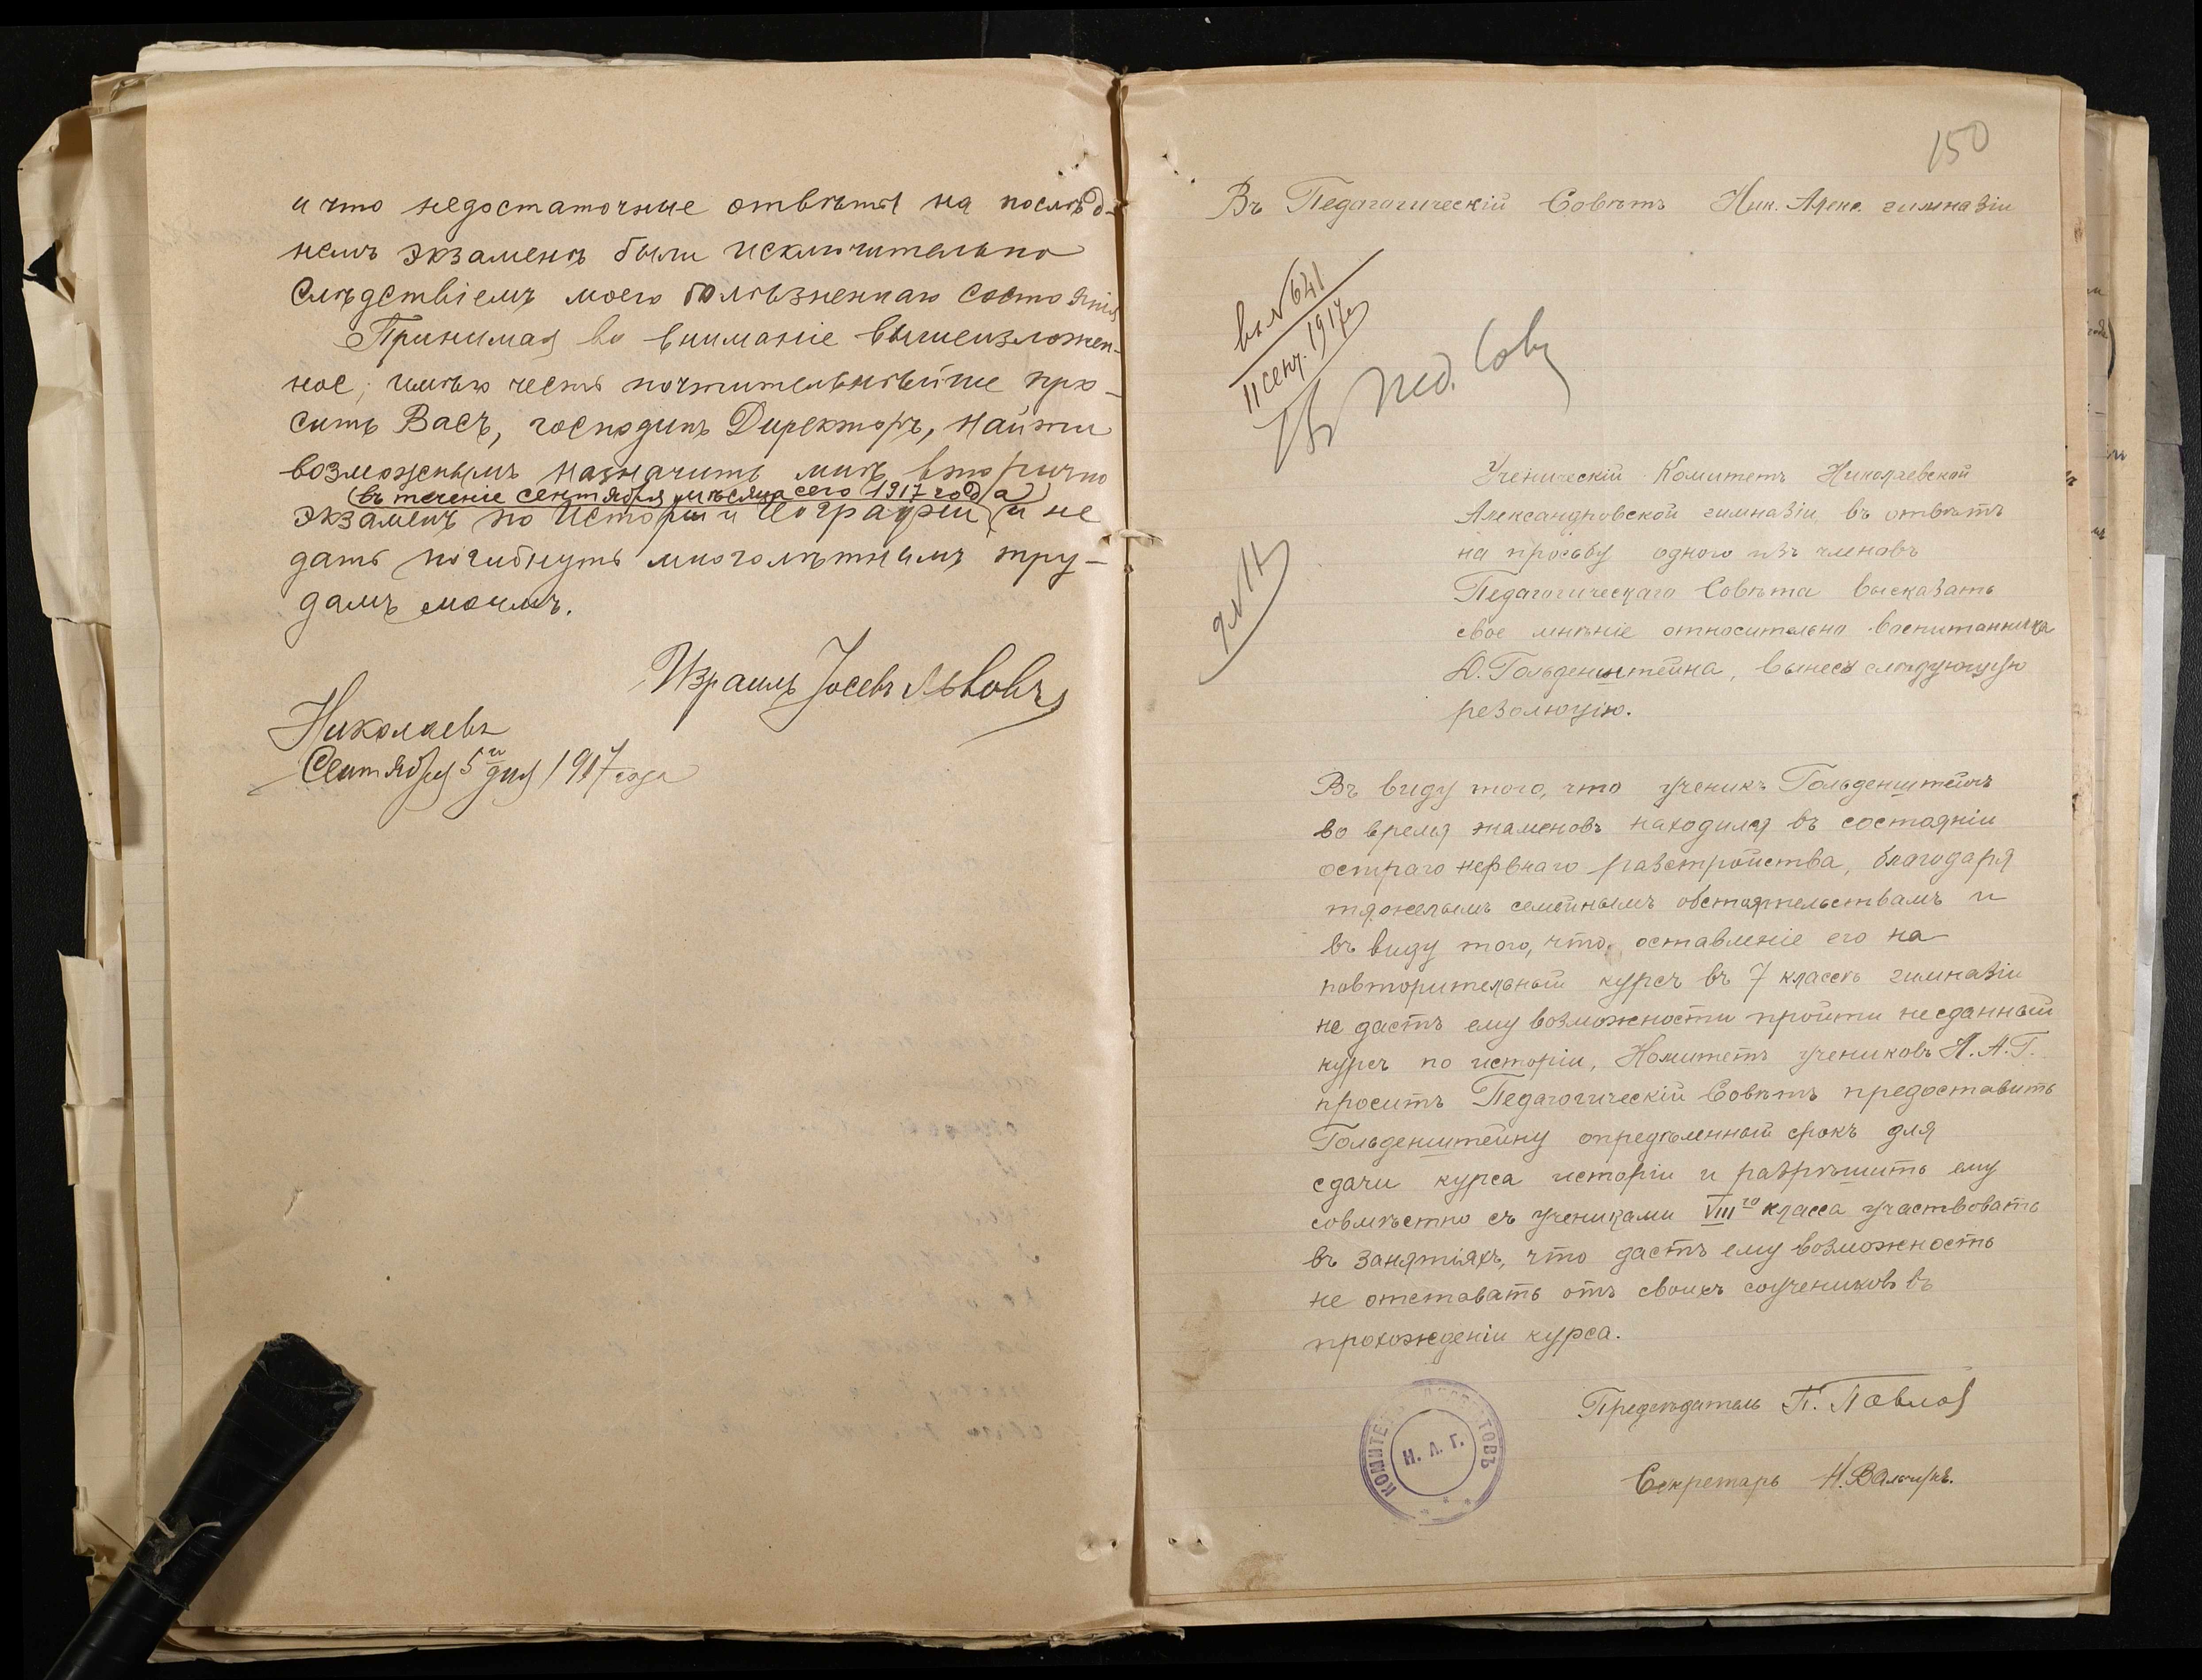 и что недостаточные отвѣты на послѣд-
немъ экзаменѣ были исключительно
слѣдствіемъ моего болѣзненнаго состоянія
Принимая во вниманіе вышеизложен-
ное, имѣю честь почтительнѣйше про-
сить Васъ, господинъ Директоръ, найти
возможнымъ назначить мнѣ вторично
(въ теченіе сентября мѣсяца сего 1917 года)
экзаменъ по Исторіи и Географіи и не
дать погибнуть многолѣтнимъ тру-
дамъ моимъ.
Израиль Іосевъ Львовъ
Николаевъ
Сентября 5 дня 1917 года
150
Въ Педагогическій Совѣтъ Ник. Алекс. гимназіи
вх № 641
11 сент. 1917 г
Въ Пед. Сов
Ученическій Комитетъ Николаевской
Александровской гимназіи, въ отвѣтъ
на просьбу одного изъ членовъ
Педагогическаго Совѣта высказать
свое мнѣніе относительно воспитанника
Ю. Гольденштейна, вынесъ слѣдующую
резолюцію.
Въ виду того, что ученикъ Гольденштейнъ
во время экзаменовъ находился въ состояніи
остраго нервнаго разстройства, благодаря
тяжелымъ семейнымъ обстоятельствамъ и
въ виду того, что оставленіе его на
повторительный курсъ въ 7 классѣ гимназіи
не дастъ ему возможности пройти несданный
курсъ по исторіи, Комитетъ учениковъ Н.А.Г.
проситъ Педагогическій Совѣтъ предоставить
Гольденштейну опредѣленный срокъ для
сдачи курса исторіи и разрѣшить ему
совмѣстно съ учениками VIII го класса участвовать
въ занятіяхъ, что дастъ ему возможность
не отставать отъ своихъ соучениковъ въ
прохожденіи курса.
Предсѣдатель П. Павлов
Секретарь Н.
КОМИТЕ
ТОВЪ
Н. А. Г.